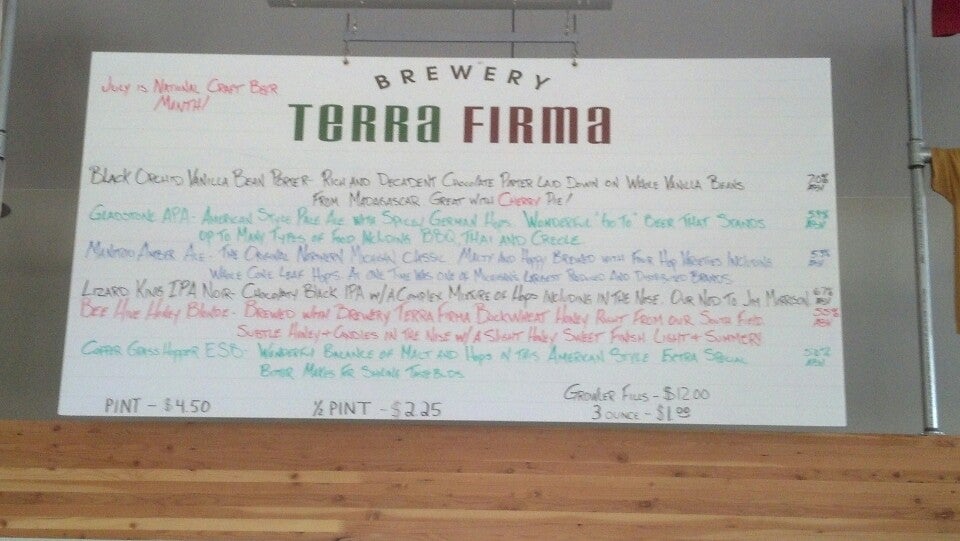 BREWERY
TERRA FIRMA
JULY IS NATIONAL CRAFT BEER
MONTH!
BLACK ORCHID VANILLA BEAN PORTER - RICH AND DECADENT CHOCOLATE PORTER LAID DOWN ON WHOLE VANILLA BEANS 7.0% ABV
FROM MADAGASCAR GREAT WITH CHERRY PIE!
GLADSTONE APA - AMERICAN STYLE PALE ALE WITH SPICEY GERMAN HOPS. WONDERFUL "GO TO" BEER THAT STANDS ABV
UP TO MANY TYPES OF FOOD INCLUDING BBQ, THAI AND CREOLE
MANITOU AMBER ALE - THE ORIGINAL NORTHERN MICHIGAN CLASSIC. MALTY AND HOPPY BREWED WITH FOUR HOP VARIETIES INCLUDING ABV
WHOLE CONE LEAF HOPS. AT ONE TIME WAS ONE OF MICHIGAN'S LARGEST PRODUCED AND DISTRIBUTED BRANDS.
LIZARD KING IPA NOIR - CHOCOLATY BLACK IPA W/ A COMPLEX MIXTURE OF HOPS INCLUDING IN THE NOSE. OUR NOD TO JIM MORRISON 6.7% ABV
BEE HIVE HONEY BLONDE - BREWED WITH BREWERY TERRA FIRMA BUCKWHEAT HONEY RIGHT FROM OUR SOUTH FIELD. 5.5% ABV
SUBTLE HONEY + CANDIES IN THE NOSE W/ A SLIGHT HONEY SWEET FINISH LIGHT + SUMMERY
COPPER GRASS HOPPER ESB - WONDERFUL BALANCE OF MALT AND HOPS IN THIS AMERICAN STYLE EXTRA SPECIAL ABV
BITTER MAKES FOR SMILING TASTEBUDS
GROWLER FILLS - $12.00
PINT - $4.50 ½ PINT - $2.25 3 OUNCE - $1.00